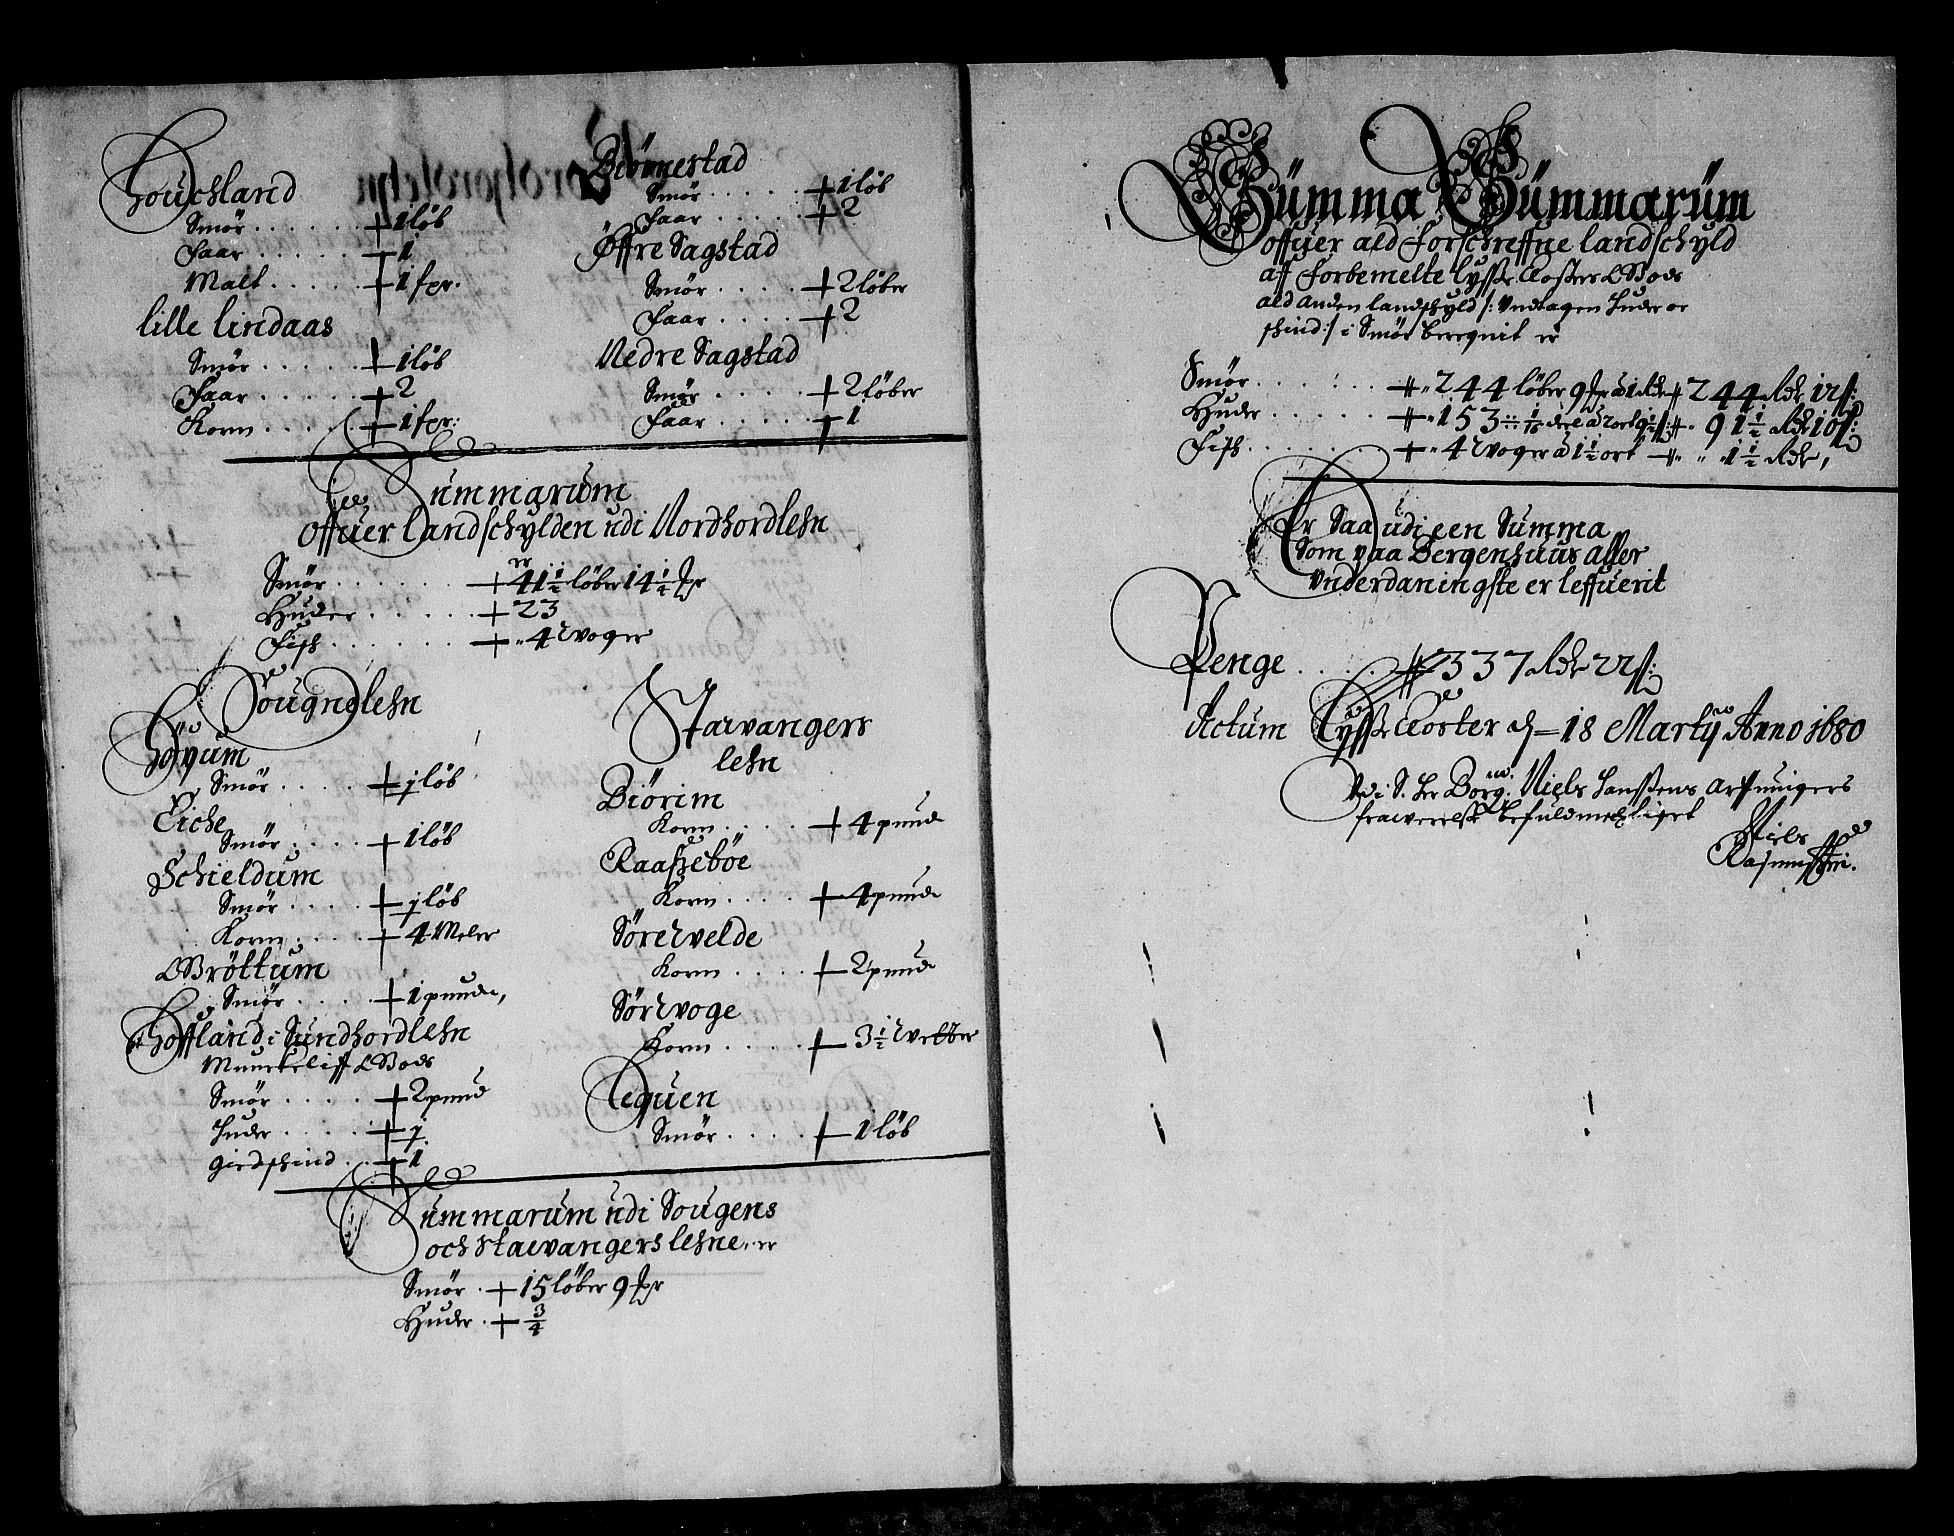 Houchland
Smör . . . . . . 1 löb
Faar . . . . . 1
Malt . . . . . 1 fpr.
lille lindaas
Smör . . . . . 1 löb
Faar . . . . . 2
Korn . . . . 1 fpr:
Biönnestad
Smör . . . . . 1 löb
Faar . . . . . 2
Öffre Sagstad
Smör . . . . 2 löber
Faar . . . . 2
Nedre Sagstad
Smör . . . . 2 löber
Faar . . . . 1
Summarum
offuer landschylden udi Nordhordlehn
er
Smör . . . . . . 41 1/2 löber 14 1/4 pr
Huder . . . . . 23
Fisk . . . . . . 4 woger
Sougnelehn
Höyum
Smör . . . . 1 löb
Eiche
Smör . . . . 1 löb
Schieldum
Smör . . . . 1 löb
Korn . . . . 4 Meler
Bröttum
Smör . . . . 1 punde,
Hoffland i Sundhordlehn
Munckeliff Gods
Smör . . . . 2 pund
Huder . . . . 1.
giedschind . . 1
Stawangers
lehn
Biörim
Korn . . . . 4 punde
Raaßeböe
Korn . . . . 4 punde
Sörewelde
Korn . . . . 2 punde
Sörwoge
Korn . . . . 3 1/2 Wetter
Lequen
Smör . . . . 1 löb
Summarum udi Sougens
och Stawangers lehne, er
Smör . 15 löber 9 pr
Huder . 3/4
Summa Summarum
offuer ald forschreffne landschyld
aff forbemelte Lysse Closters Gods
ald anden landschyld /: undtagen Huder oc
schind :/ i Smör beregnit er
Smör . . . : . . 244 löber 9 pr à 1 Rdr 244 Rdr 12 ß:
Huder . . . . . 153 1/16 deel à 2 ort 9 1/2 ß: 91 1/2 Rdr 10 ß:
Fisk . . . . . . . 4 woger à 1 1/2 ort 1 1/2 Rdr,
Er Saa udi een Summa
Som paa Bergenhuus aller
Underdaningste er leffuerit
Penge . . . . . 337 Rdr 22 ß:
Actum Lysse Closter d 18 Martij Anno 1680
Udi S. Hr Borg: Niels Hanßens Arfuingers
frawerelse befuldmechtiget
Niels
Rasmussen.